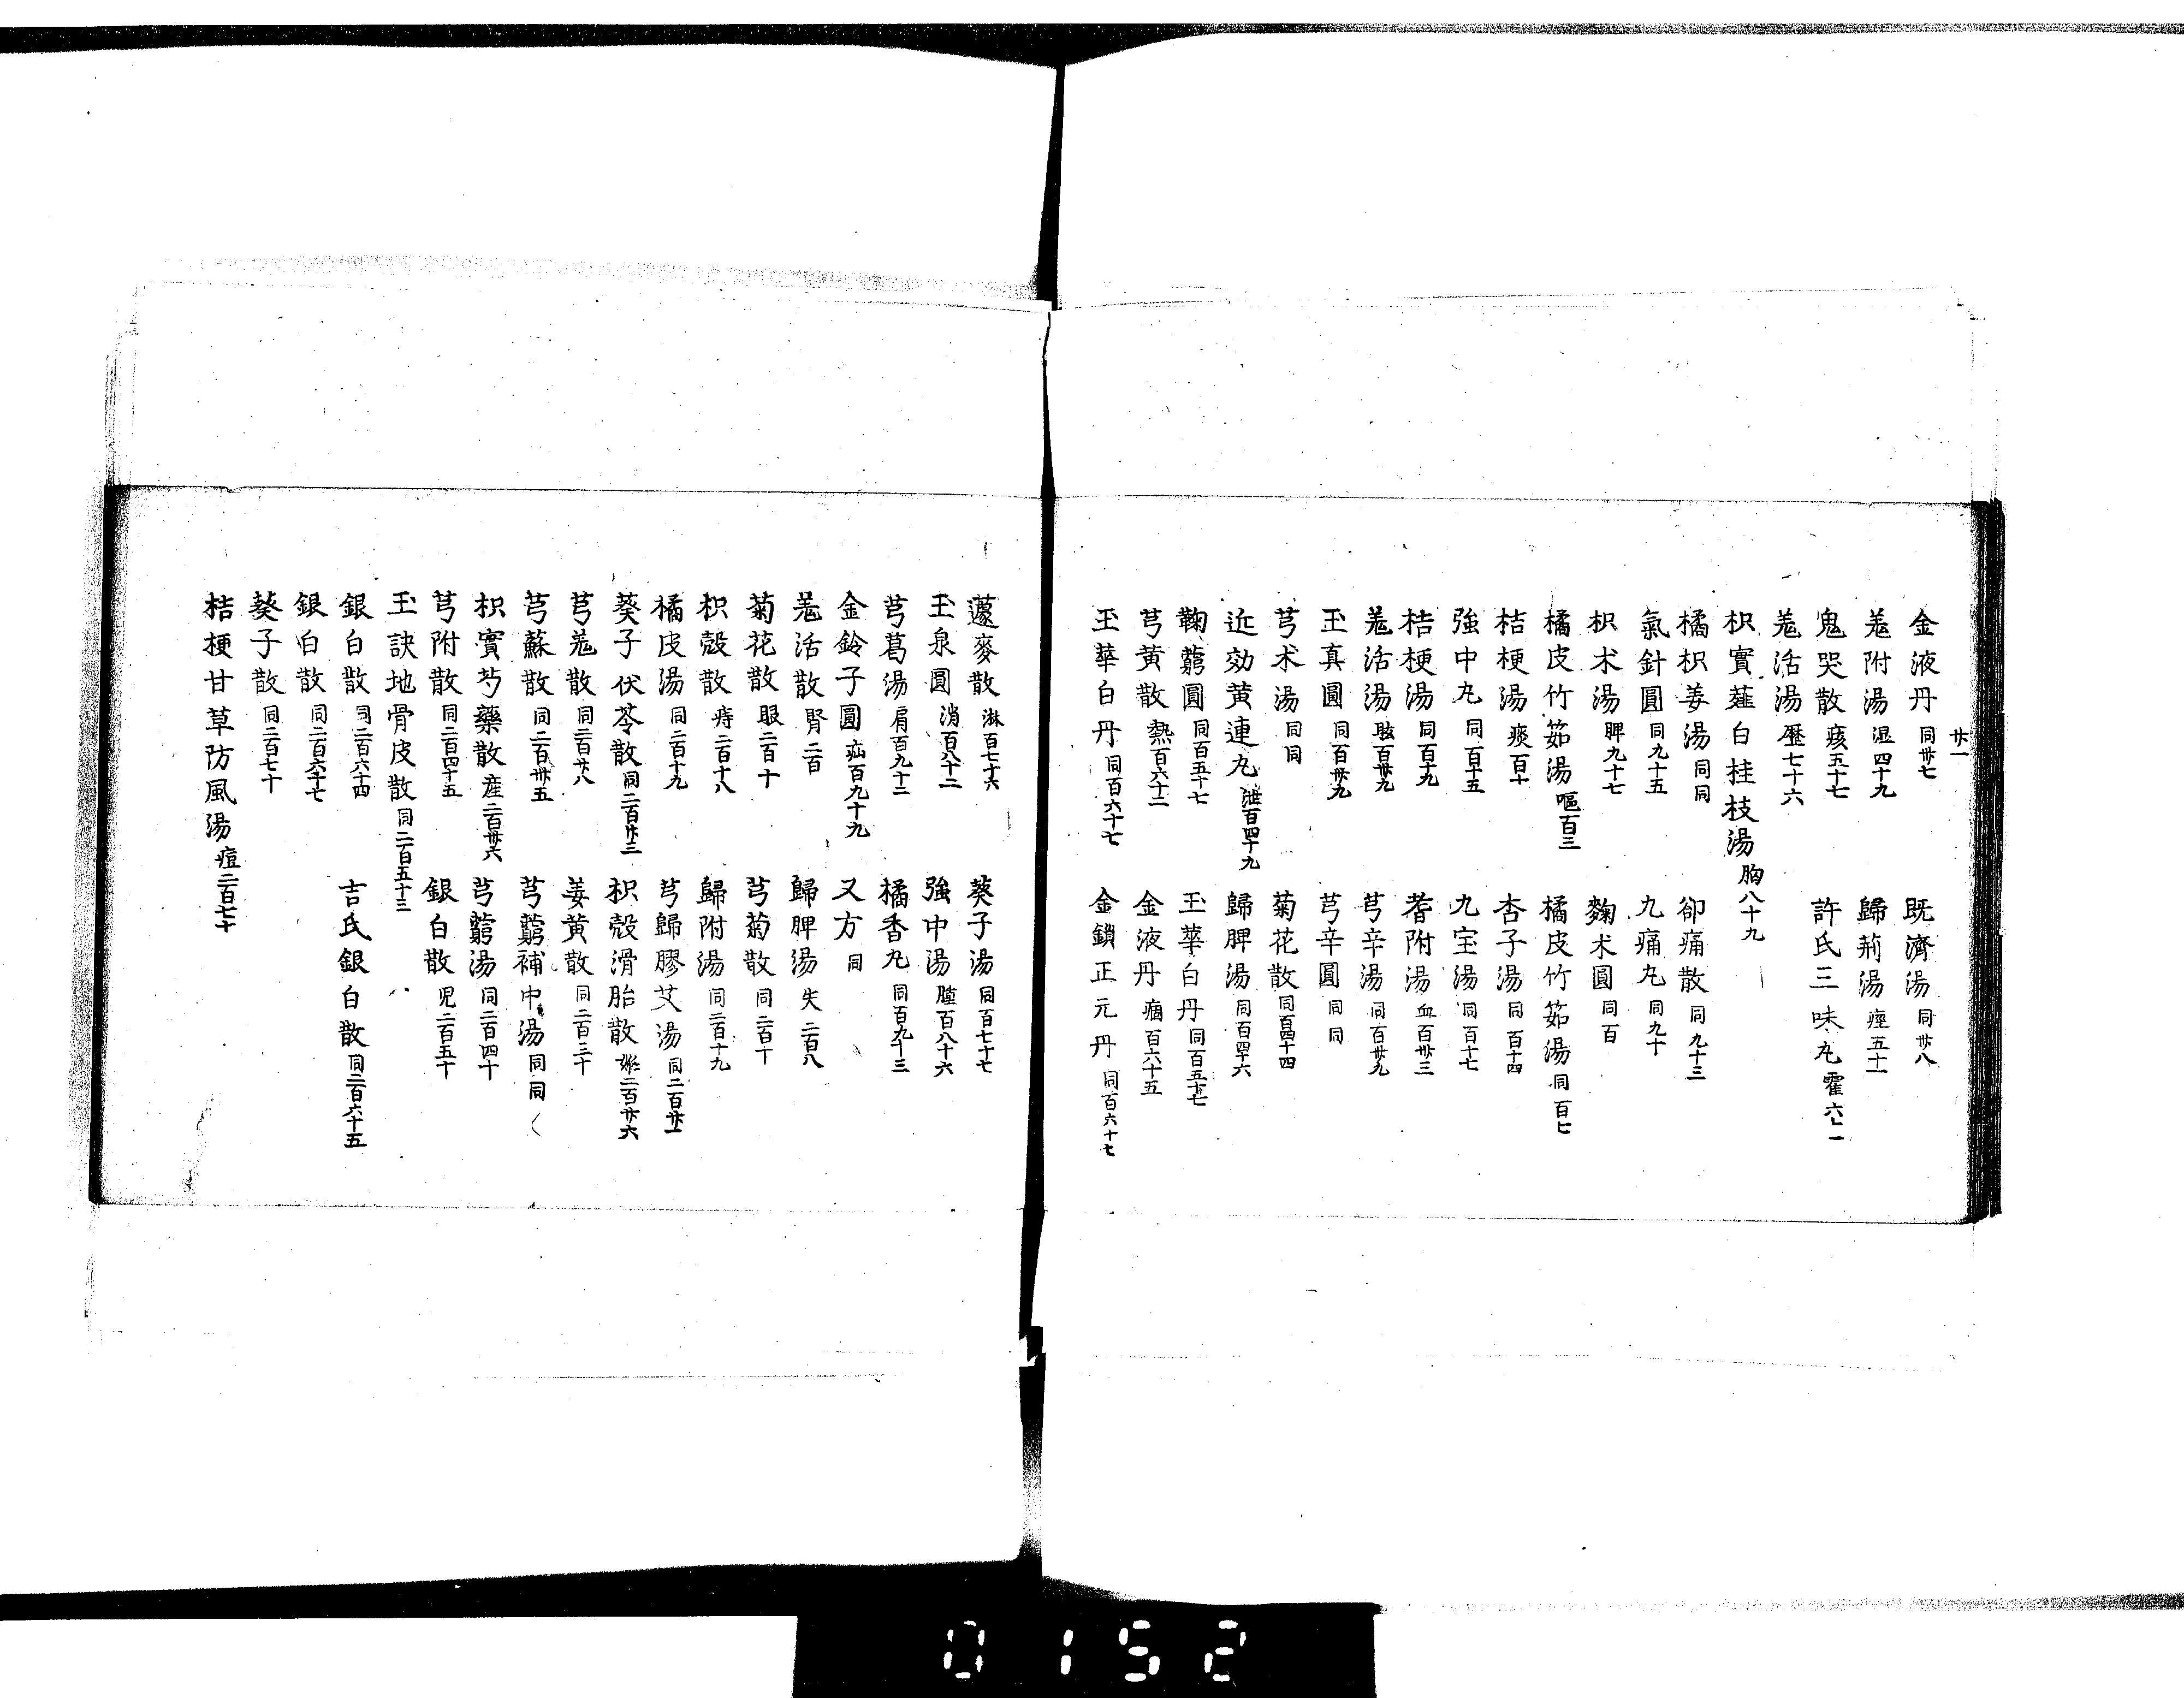 金液丹 同卅七 既濟湯 同卅八
羗附湯 湿四十九 歸荊湯 痙五十一
鬼哭散 痎五十七 許氏三味丸 霍六十一
羗活湯 歷七十六
枳實薤白桂枝湯 胸八十九
橘枳姜湯 同同 卻痛散 同九十三
氣針圓 同九十五 九痛丸 同九十
枳术湯 脾九十七 麴术圓 同百
橘皮竹茹湯 嘔百三 橘皮竹茹湯 同百七
桔梗湯 痰百十 杏子湯 同百十四
強中丸 同百十五 九宝湯 同百十七
桔梗湯 同百十九 耆附湯 血百卅三
羗活湯 眩百卅九 芎辛湯 同百卅九
玉真圓 同百卅九 芎辛圓 同同
芎术湯 同同 菊花散 同百四十四
近効黄連丸 泄百四十九 歸脾湯 同百四十六
鞠藭圓 同百五十七 玉華白丹 同百五十七
芎黄散 熱百六十二 金液丹 痼百六十五
玉華白丹 同百六十七 金鎖正元丹 同百六十七
廿一
蘧麥散 淋百七十六 葵子湯 同百七十七
玉泉圓 消百八十二 強中湯 腫百八十六
芎葛湯 肩百九十二 橘香丸 同百九十三
金鈴子圓 疝百九十九 又方 同
羗活散 腎二百 歸脾湯 失二百八
菊花散 眼二百十 芎菊散 同二百十
枳殻散 痔二百十八 歸附湯 同二百十九
橘皮湯 同二百十九 芎歸膠艾湯 同二百廿一
葵子伏苓散 同二百廿三 枳殻滑胎散 二百廿六
芎羗散 同二百廿八 姜黄散 同二百三十
芎蘇散 同二百卅五 芎藭補中湯 同同
枳實芍藥散 産二百卅六 芎藭湯 同二百四十
芎附散 同二百四十五 銀白散 児二百五十
玉訣地骨皮散 同二百五十三
銀白散 同二百六十四 吉氏銀白散 同二百六十五
銀白散 同二百六十七
葵子散 同二百七十
桔梗甘草防風湯 痘二百七十
0152